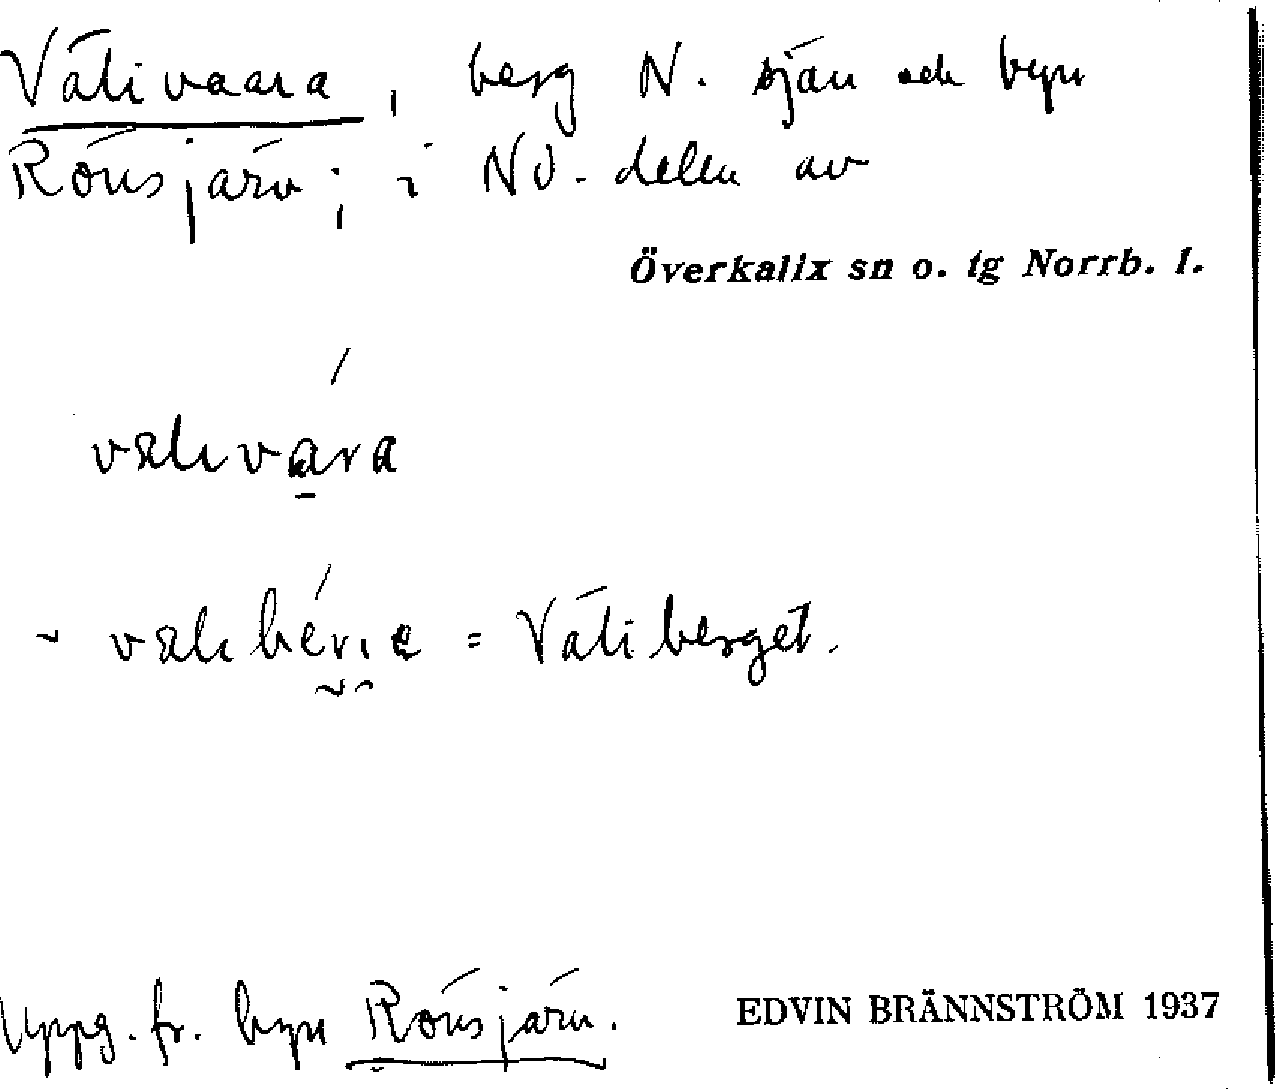 Vätivaara, berg N. sjön och byn
Rönsjärv; i NO. delen av
Överkalix sn o. tg Norrb. l.
vätɩvára
~ vätɩ bérɩe = Vätiberget.
Uppg. fr. byn Rönsjärv.
EDVIN BRÄNNSTRÖM 1937